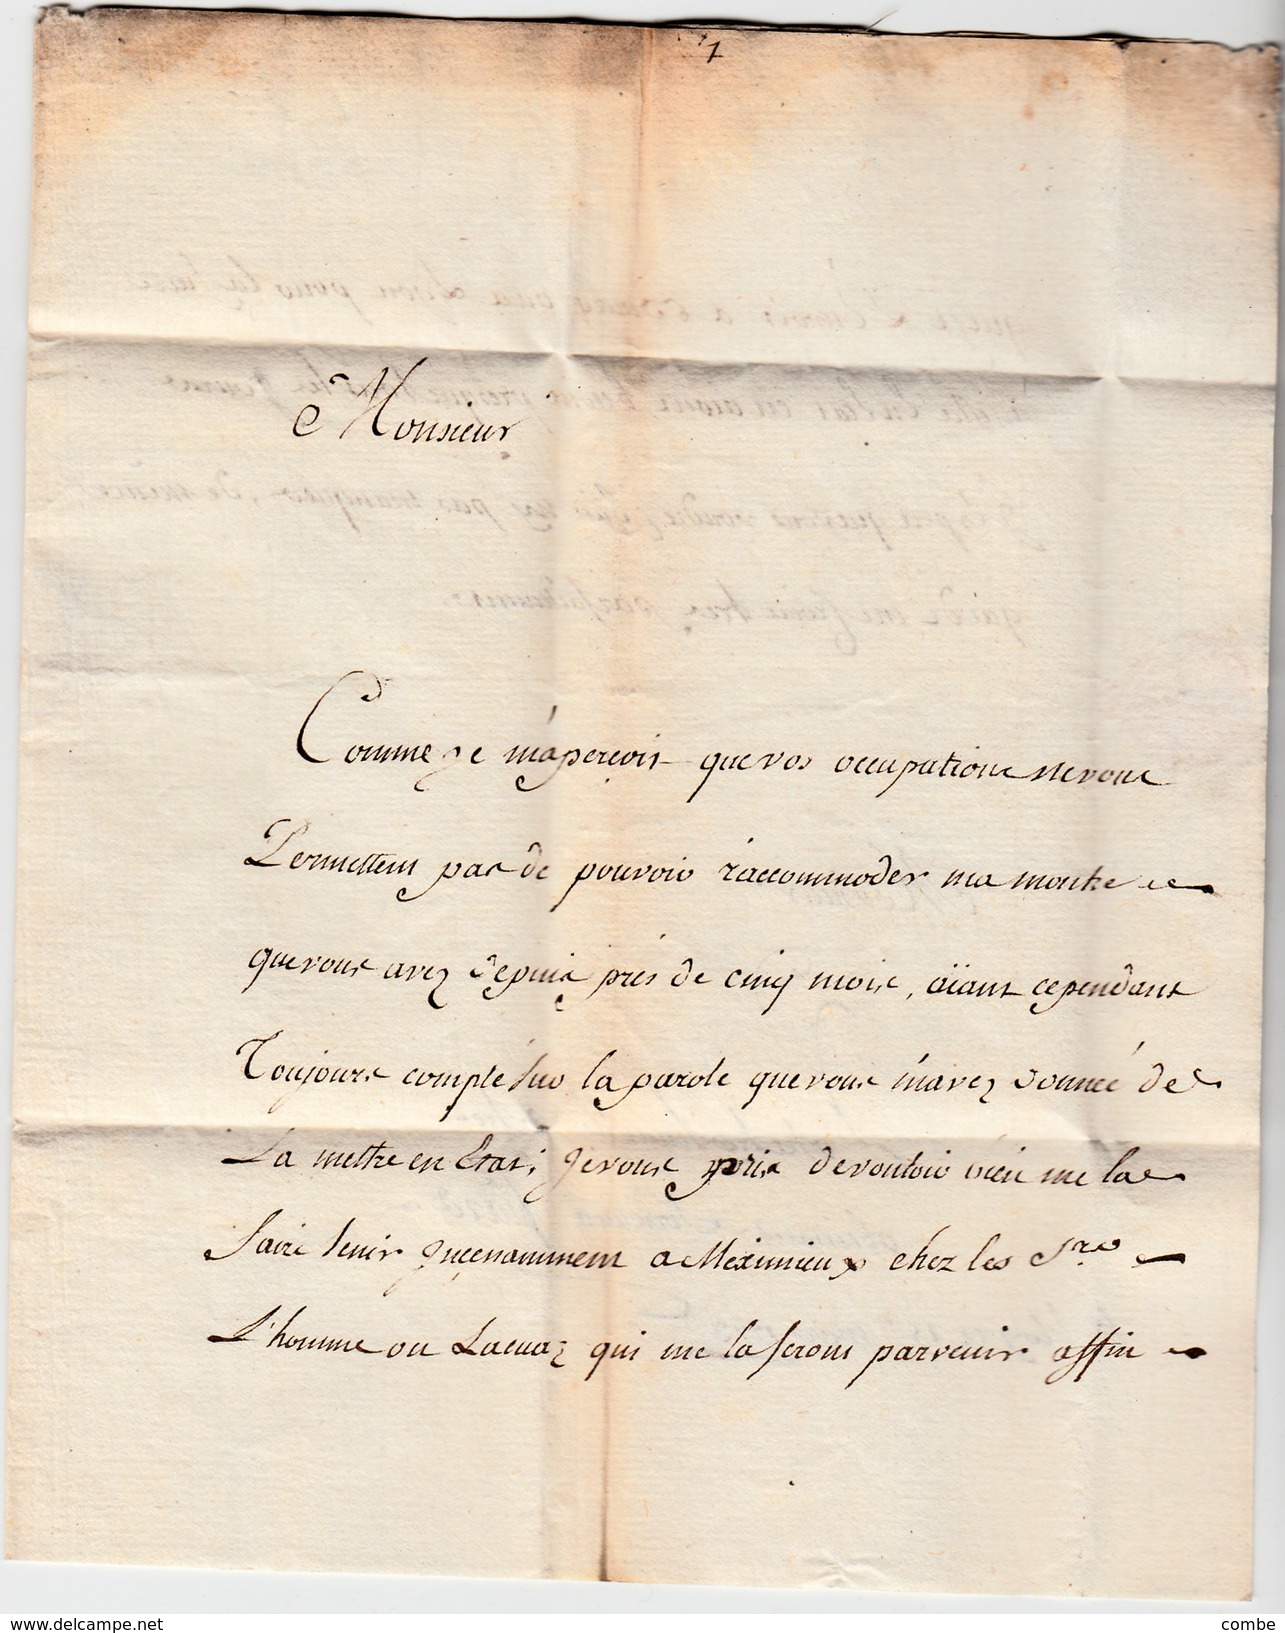 1
Monsieur
Comme je m'aperçois que vos occupations ne vous
Permettent pas de pouvoir raccommoder ma montre
que vous avez depuis près de cinq mois, aïant cependant
Toujours compté sur la parole que vous m'avez donnée de
La mettre en Etat; je vous prie de vouloir bien me la
faire tenir à Meximieux chez les Srs
L'homme ou Lacuaz qui me la feront parvenir affin
delcampe.net
combe